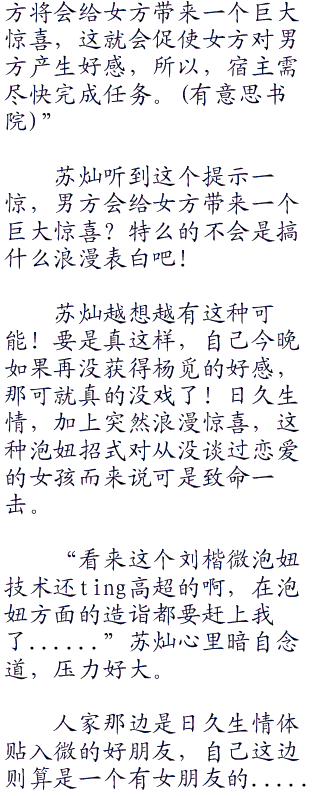 方将会给女方带来一个巨大
惊喜，这就会促使女方对男
方产生好感，所以，宿主需
尽快完成任务。(有意思书
院)”
苏灿听到这个提示一
惊，男方会给女方带来一个
巨大惊喜？特么的不会是搞
什么浪漫表白吧！
苏灿越想越有这种可
能！要是真这样，自己今晚
如果再没获得杨觅的好感，
那可就真的没戏了！日久生
情，加上突然浪漫惊喜，这
种泡妞招式对从没谈过恋爱
的女孩而来说可是致命一
击。
“看来这个刘楷微泡妞
技术还ting高超的啊，在泡
妞方面的造诣都要赶上我
了......”苏灿心里暗自念
道，压力好大。
人家那边是日久生情体
贴入微的好朋友，自己这边
则算是一个有女朋友的.....